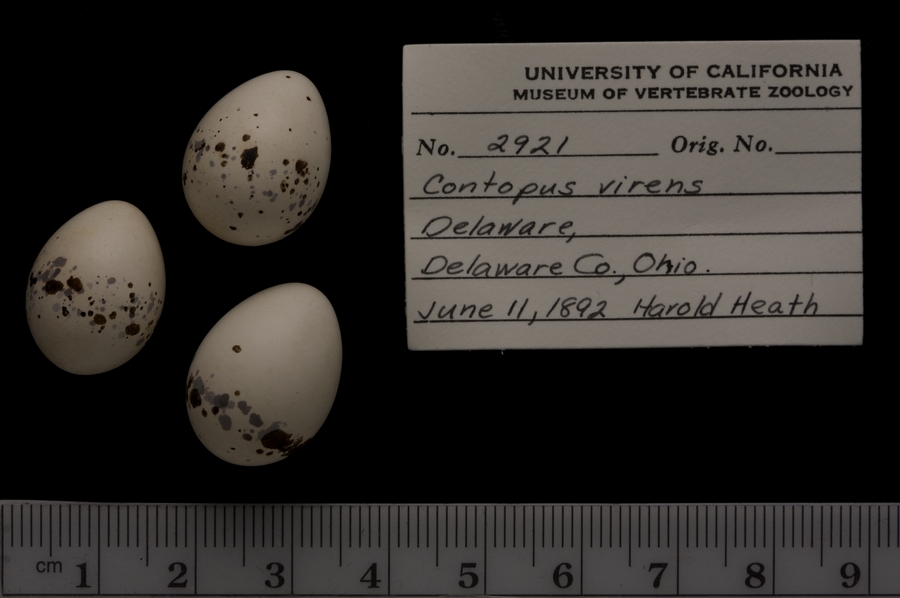 UNIVERSITY OF CALIFORNIA
MUSEUM OF VERTEBRATE ZOOLOGY
No. 2921 Orig. No.
Contopus virens
Delaware,
Delaware Co., Ohio.
June 11, 1892 Harold Heath
cm 1 2 3 4 5 6 7 8 9